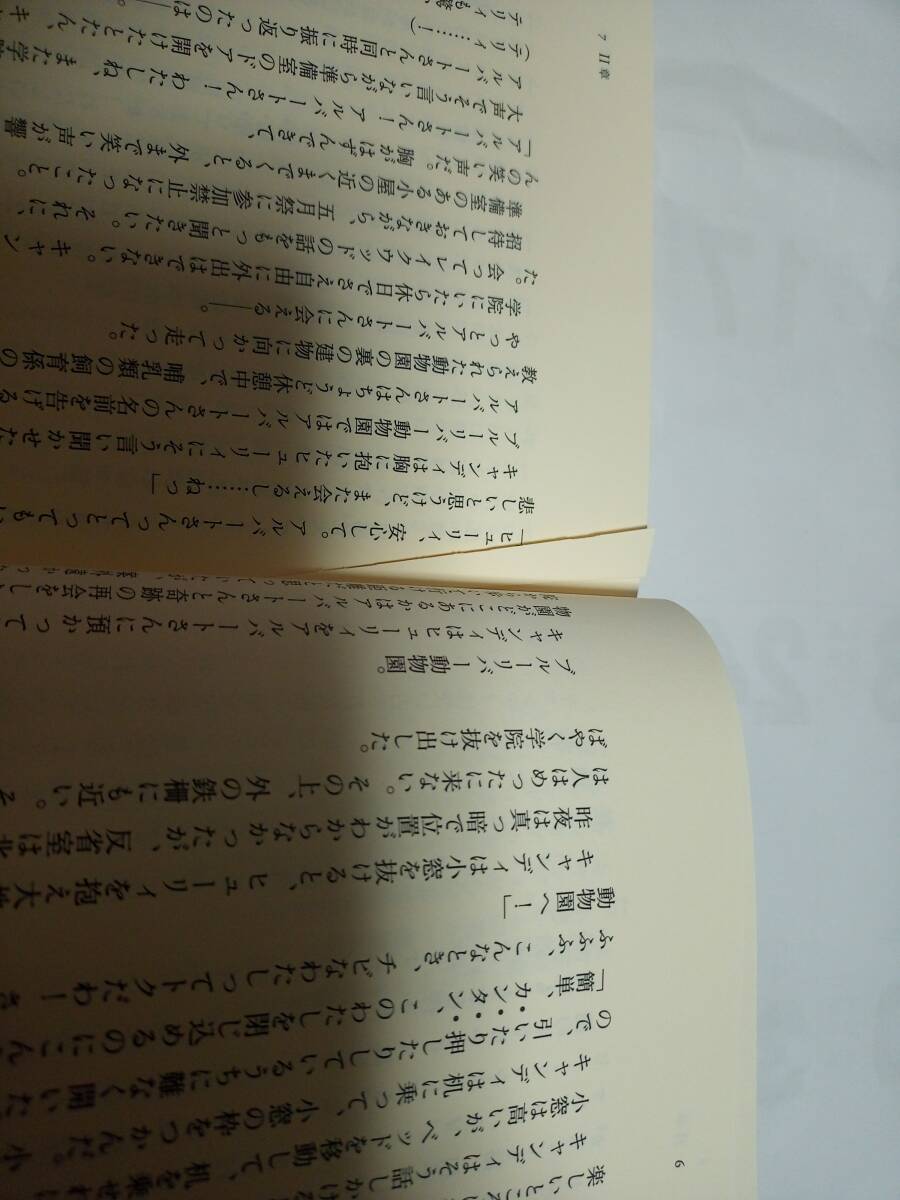 6
楽しいところ
キャンディはそう話しか
小窓は高いが、ベッドを移動して、机を乗せ
キャンディは机に乗って、小窓の枠をつかんだ。小
ので、引いたり押したりしているうちに難なく開いた
「簡単、カンタン、このわたしを閉じ込めるのにこん
ふふふ、こんなとき、チビなわたしってトクだわー さ
動物園へ!」
キャンディは小窓を抜けると、ヒューリィを抱え大
昨夜は真っ暗で位置がわからなかったが、反省室は北
は人はめったに来ない。その上、外の鉄柵にも近い。そ
ばやく学院を抜け出した。
ブルーリバー動物園。
キャンディはヒューリィをアルバートさんに預かって
物園がどこにあるかはアルバートさんと奇跡の再会をし
「ヒューリィ、安心して。アルバートさんってとってもい
悲しいと思うけど、また会えるし……ねっ」
キャンディは胸に抱いたヒューリィにそう言い聞かせた
ブルーリバー動物園ではアルバートさんの名前を告げる
アルバートさんはちょうど休憩中で、哺乳類の飼育係の
教えられた動物園の裏の建物に向かって走った。
やっとアルバートさんに会える――。
学院にいたら休日でさえ自由に外出はできない。キャン
た。会ってレイクウッドの話をもっと聞きたい。それに、
招待しておきながら、五月祭に参加禁止になったこと。
準備室のある小屋の近くまでくると、外まで笑い声が響
んの笑い声だ。胸がはずんできて、
「アルバートさん! わたしね、また学
大声でそう言いながら準備室のドアを開けたとたん、キ
アルバートさんと同時に振り返ったのは
(テリィ……!)
テリィも驚
7 II章